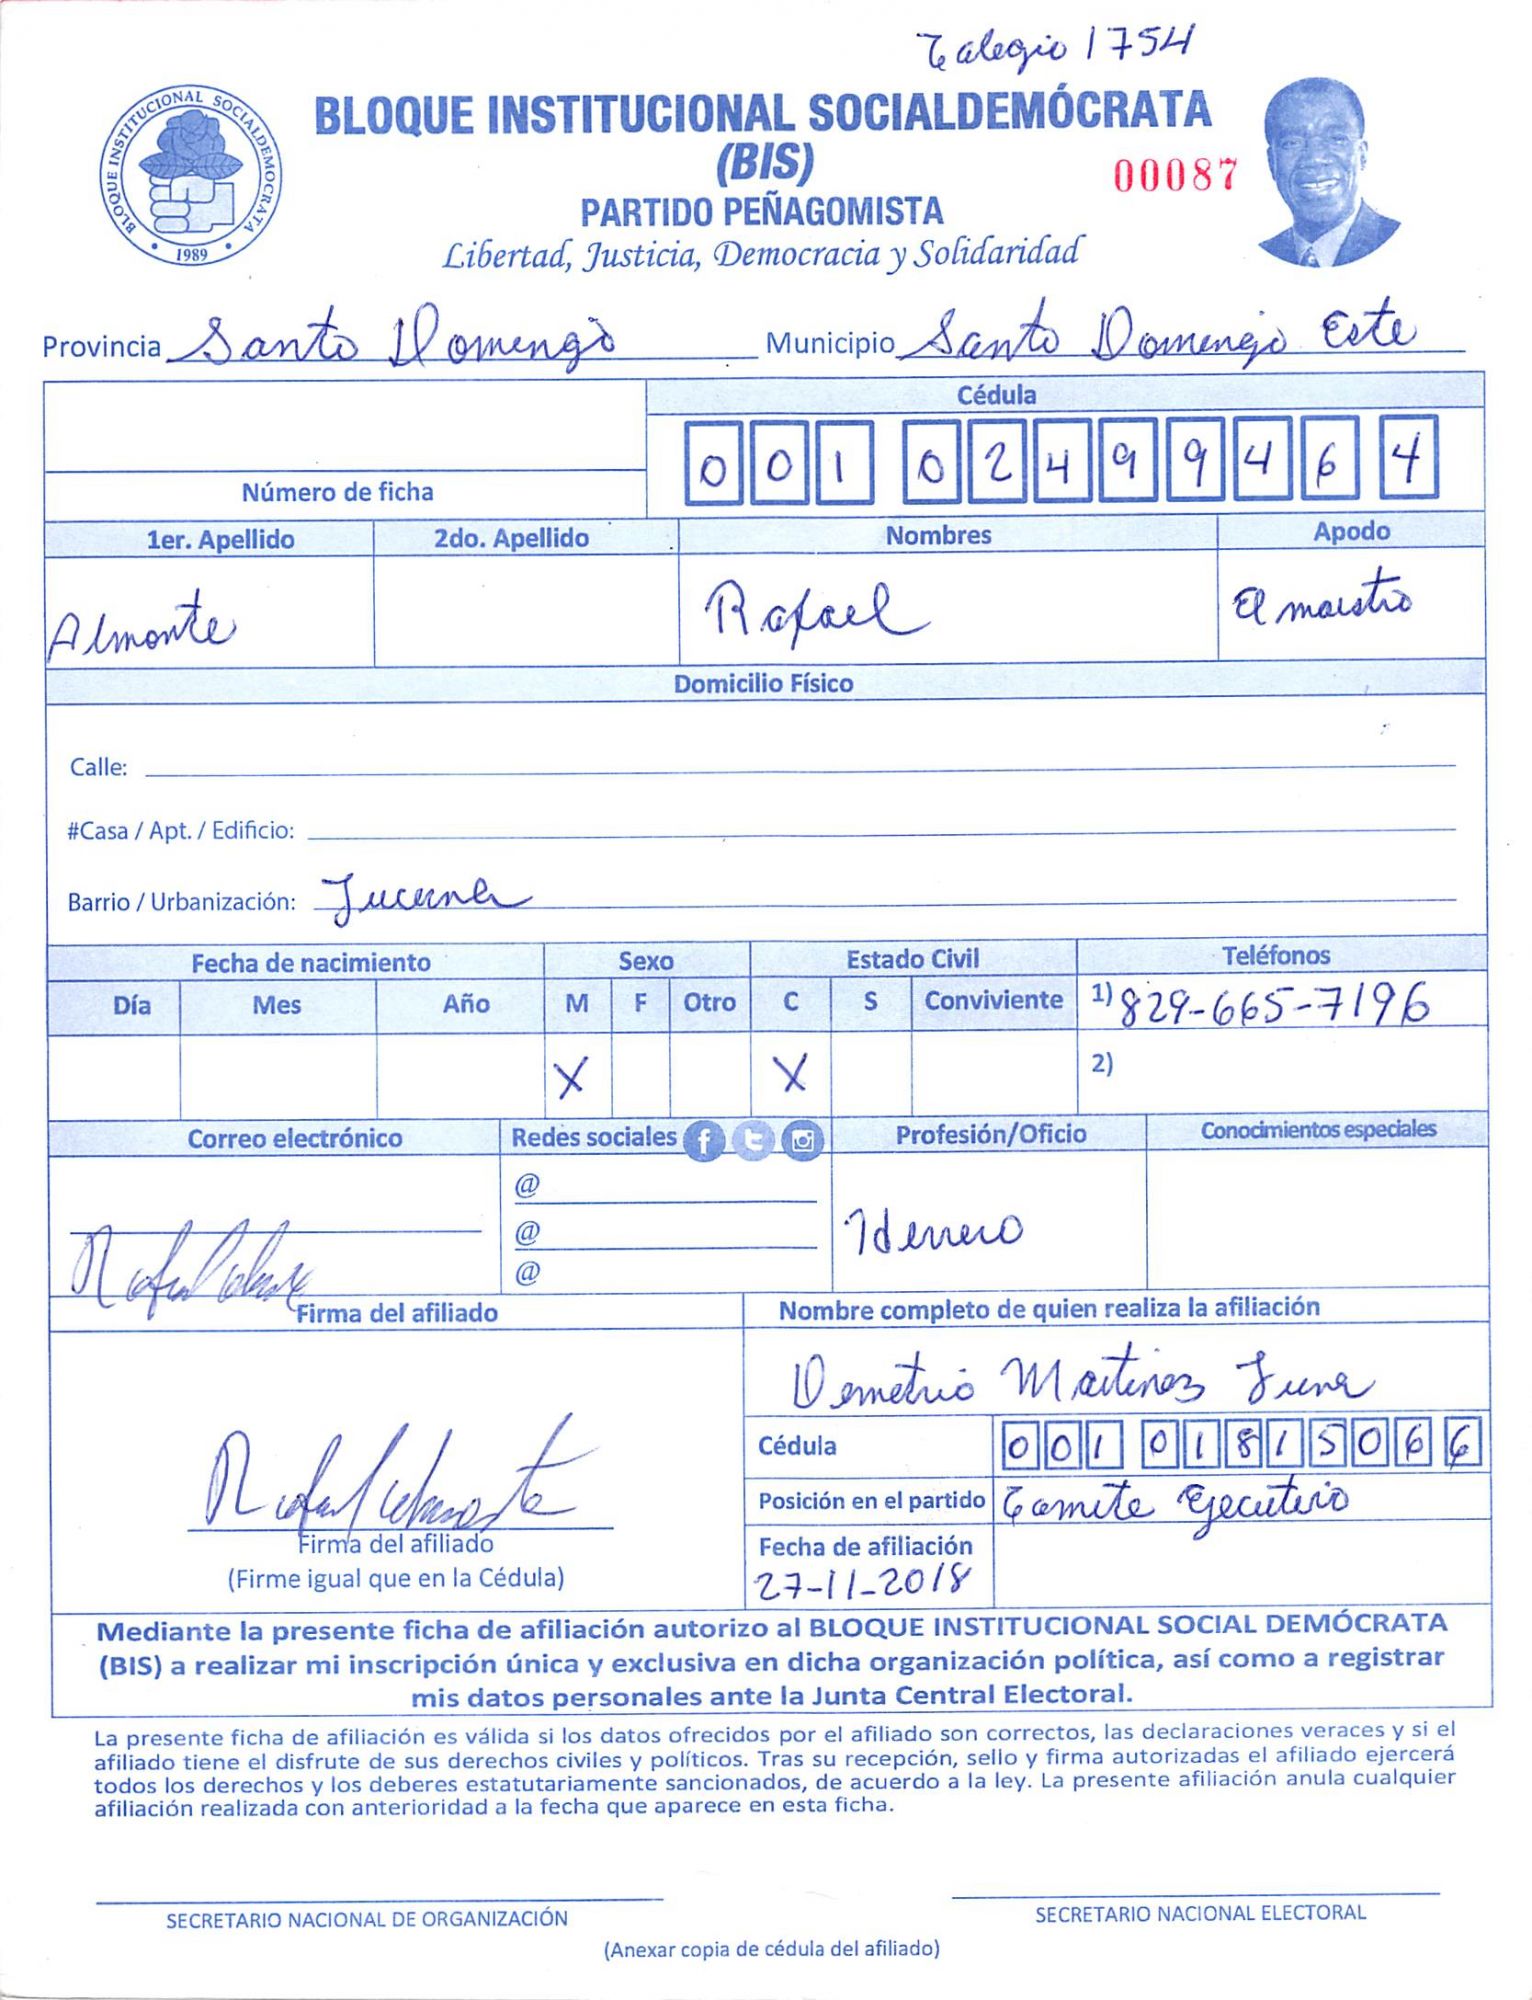 Colegio 1754
BLOQUE INSTITUCIONAL SOCIALDEMÓCRATA
BLOQUE INSTITUCIONAL SOCIALDEMOCRATA
1989
(BIS)
00087
PARTIDO PEÑAGOMISTA
Libertad, Justicia, Democracia y Solidaridad
Provincia Santo Domingo Municipio Santo Domingo Este
Cédula
0 0 1 0 2 4 9 9 4 6 4
Número de ficha
1er. Apellido 2do. Apellido Nombres Apodo
Almonte Rafael El maestro
Domicilio Físico
Calle:
#Casa / Apt. / Edificio:
Barrio / Urbanización: Lucerna
Fecha de nacimiento Sexo Estado Civil Teléfonos
Día Mes Año M F Otro C S Conviviente 1) 829-665-7196
X X 2)
Correo electrónico Redes sociales Profesión/Oficio Conocimientos especiales
@
@
@
Herrero
Firma del afiliado Nombre completo de quien realiza la afiliación
Demetrio Martinez Luna
Cédula 0 0 1 0 1 8 1 5 0 6 6
Posición en el partido Comite Ejecutivo
Rafael Almonte
Firma del afiliado
(Firme igual que en la Cédula)
Fecha de afiliación
27-11-2018
Mediante la presente ficha de afiliación autorizo al BLOQUE INSTITUCIONAL SOCIAL DEMÓCRATA
(BIS) a realizar mi inscripción única y exclusiva en dicha organización política, así como a registrar
mis datos personales ante la Junta Central Electoral.
La presente ficha de afiliación es válida si los datos ofrecidos por el afiliado son correctos, las declaraciones veraces y si el
afiliado tiene el disfrute de sus derechos civiles y políticos. Tras su recepción, sello y firma autorizadas el afiliado ejercerá
todos los derechos y los deberes estatutariamente sancionados, de acuerdo a la ley. La presente afiliación anula cualquier
afiliación realizada con anterioridad a la fecha que aparece en esta ficha.
SECRETARIO NACIONAL DE ORGANIZACIÓN SECRETARIO NACIONAL ELECTORAL
(Anexar copia de cédula del afiliado)